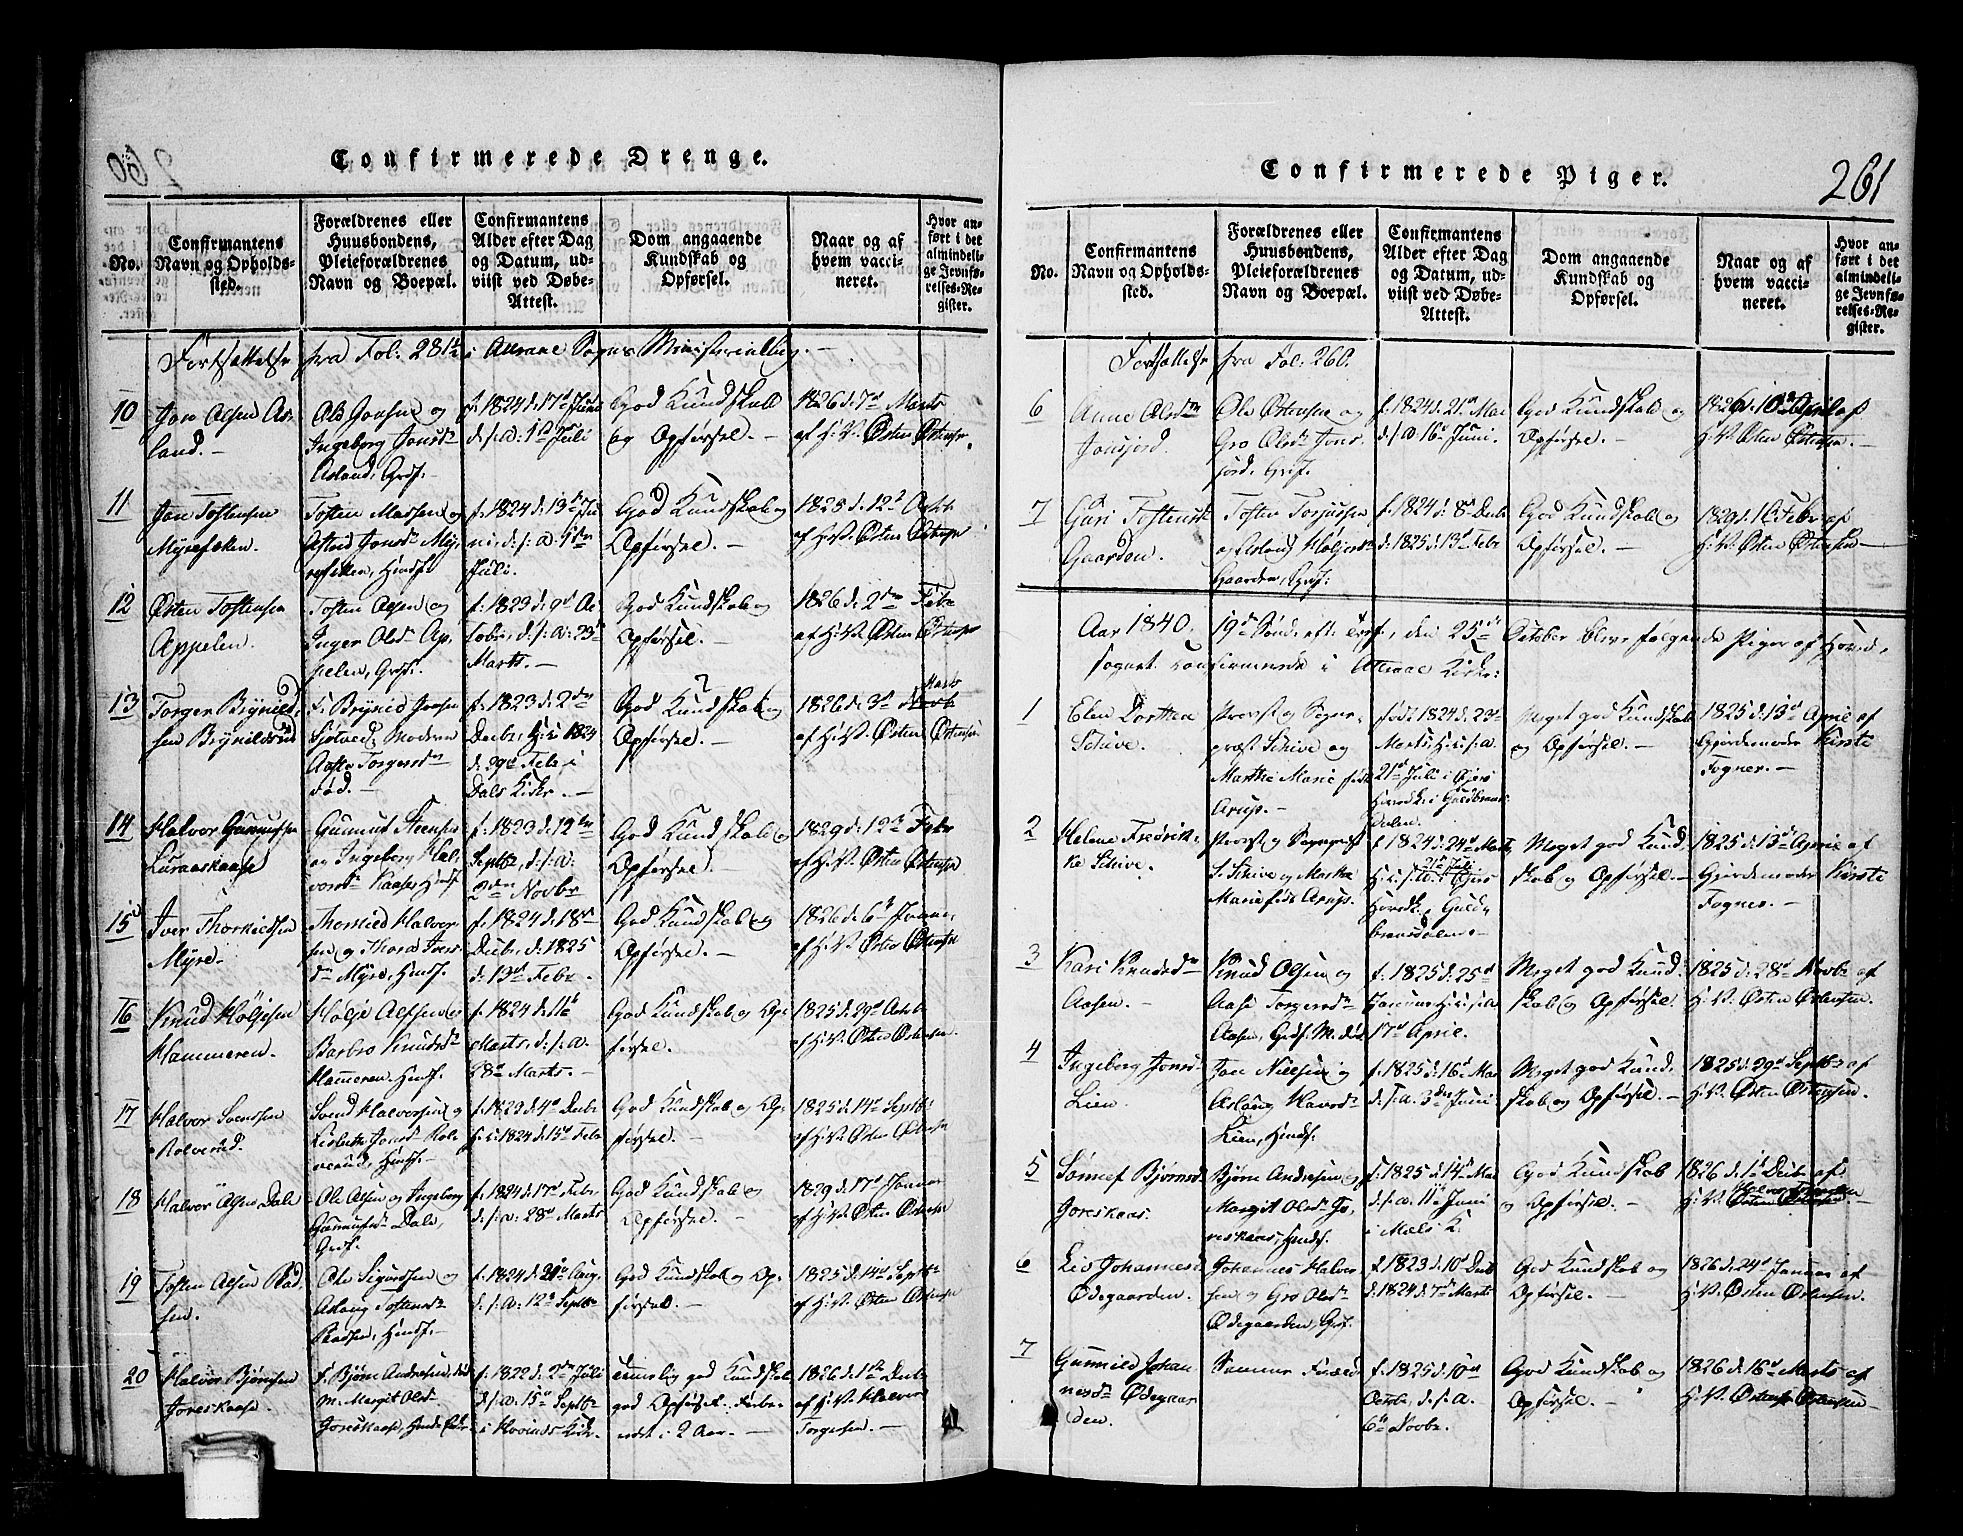 Confirmerede Drenge.
No.
Confirmantens
Navn og Opholds-
sted.
Forældrenes eller
Huusbondens,
Pleieforældrenes
Navn og Boepæl.
Confirmantens
Alder efter Dag
og Datum, ud-
viist ved Døbe-
Attest.
Dom angaaende
Kundskab og
Opførsel.
Naar og af
hvem vacci-
neret.
Hvor an-
ført i det
almindeli-
ge Jevnfø-
relses-Re-
gister.
Fortsættelse fra Fol: 281 i Attraae Sogns Ministerialbog.
10
Jon Olsen As-
land.
Ole Jonsen og
Ingeborg Jonsdr
Asland, Grdf.
f. 1824 d. 17d Juni
d. s. a. 1ste Juli
God Kundskab
og Opførsel.
1826 d. 7d Marts
af H. V. Østen Østensen
11
Jon Tostensen
Myrefeken.
Tosten Matsen og
Astrid Jonsdr My-
refeken, Huusf.
f. 1824 d. 13d Ju-
ni, d. s. a. 1ste
Juli.
God Kundskab og
Opførsel.
1825 d. 12d Octb
af H. V. Østen Østensen
12
Østen Tostensen
Appelen.
Tosten Olsen og
Inger Olsdr Ap-
pelen, Grdf.
f. 1823 d. 9d Oc-
tobr, d. s. a. 23d
Marts.
God Kundskab og
Opførsel.
1826 d. 2den Febr
af H. V. Østen Østensen
13
Torger Brynild-
sen Brynildsrud
F. Brynild Joensen
Sjotved, Moderen
Aaste Torgersdr
død.
f. 1823 d. 2den
Decbr, H. i 1824
d. 29d Febr i
Dals Kirke.
God Kundskab og
Opførsel.
1826 d. 3d Marts
af H. V. Østen Østensen
14
Halvor Gunnulfsen
Luraaskaasa
Gunnuf Steensen
og Ingeborg Hal-
vorsdr Kaasa, Huusf.
f. 1823 d. 12te
Septbr, d. s. a.
2den Novbr
God Kundskab og
Opførsel.
1829 d. 12d Febr
af H. V. Østen Østensen
15
Iver Thorkildsen
Myre.
Thorkild Halvor-
sen og Thora Ivers-
dr Myre, Huusf.
f. 1824 d. 18d
Decbr, d. 1825
d. 13d Febr.
God Kundskab og
Opførsel.
1826 d. 6d Januar
af H. V. Østen Østensen
16
Knud Høljesen
Hammeren.
Hølje Olsen og
Barbro Knudsdr
Hammeren, Huusf.
f. 1824 d. 11te
Marts, d. s. a.
18d Marts.
God Kundskab og Op-
førsel.
1825 d. 29d Octb
af H. V. Østen Østensen.
17
Halvor Svensen
Rolverud.
Svend Halvorsen og
Liskete Jonsdr Rol-
verud, Huusf.
f. 1823 d. 4d Decbr
H. i 1824 d. 15d Febr
God Kundskab og Op-
førsel.
1825 d. 14d Septbr
af H. V. Østen Østensen
18
Halvor Olsen Dale
Ole Olsen og Ingeborg
Gunnufsdr Dale,
Grdf.
f. 1824 d. 17d Febr
d. s. a. 28d Marts
God Kundskab og
Opførsel.
1829 d. 17d Januar
af H. V. Østen Østensen
19
Tosten Olsen Bad-
sen.
Ole Sigurdsen og
Aslaug Tostensdr
Badsen, Huusf.
f. 1824 d. 20d Aug.
d. s. a. 12d Septbr
God Kundskab og Op-
førsel.
1825 d. 14d Septbr
af H. V. Østen Østensen
20
Halvor Bjørnsen
Joreskaase.
F. Bjørn Andersen, død
M. Margit Olsdr
Joreskaase,
f. 1822 d. 2den Juli
d. s. a. 15d Septbr
i Hovinds Kirke.
temmelig god Kundskab
god Opførsel. Forbe-
redt i 2 Aar.
1826 d. 1ste Decbr
af H. V. Halvor
Torgersen.
Confirmerede Piger.
261
No.
Confirmantens
Navn og Opholds-
sted.
Forældrenes eller
Huusbondens,
Pleieforældrenes
Navn og Boepæl.
Confirmantens
Alder efter Dag
og Datum, ud-
viist ved Døbe-
Attest.
Dom angaaende
Kundskab og
Opførsel.
Naar og af
hvem vacci-
neret.
Hvor an-
ført i det
almindeli-
ge Jevnfø-
relses-Re-
gister.
Fortsættelse fra Fol: 260.
6
Anne Olsdr
Jonsjord.
Ole Østensen og
Gro Olsdr Jons-
jord, Grdf.
f. 1824 d. 21d Mai
d. s. a. 16d Juni.
God Kundskab og
Opførsel.
1826 d. 10d April af
H. V. Østen Østensen.
7
Guri Tostensdr
Gaarden.
Tosten Torjusen
og Aslaug Høljesdr
Gaarden, Grdf.
f. 1824 d. 8d Decbr
d. 1825 d. 13d Febr
God Kundskab og
Opførsel.
1829 d. 16 Febr af
H. V. Østen Østensen
Aar 1840. 19de Sønd. eft. Tref., den 25de October bleve følgende Piger af Hovind-
sognet confirmerede i Attraae Kirke:
1
Elen Dorthea
Schive.
Provst og Sogne-
præst Schive og
Marthe Marie født
Arup.
født 1824 d. 23d
Marts, H. i. s. a.
21d Juli i Øiers
Hovedk. i Guldbrands-
dalen.
Meget god Kundskab
og Opførsel.
1825 d. 13d April af
Gjordemoder Kirste
Fogner.
2
Helene Fredrik-
ke Schive.
Provst og Sognepræst
S. Schive og Marthe
Marie født Arup.
f. 1824 d. 24d Marts,
H. i. s. a. 21d Juli i Øiers
Hovedk. i Guld-
bransdalen.
Meget god Kund-
skab og Opførsel.
1825 d. 13d April af
Gjordemoder Kirste
Fogner.
3
Kari Knudsdr
Aasen.
Knud Olsen og
Aase Torgersdr
Aasen, Grdf. M. død
f. 1825 d. 25d
Januar H. i. s. a.
17d April.
Meget god Kund-
skab og Opførsel.
1825 d. 28d Novbr af
H. V. Østen Østensen.
4
Ingeborg Jonsdr
Lien.
Jon Nilsen og
Aslaug Havordr
Lien, Huusf.
f. 1825 d. 16d Mai
d. s. a. 3die Juni
Meget god Kund-
skab og Opførsel.
1825 d. 29d Septbr af
H. V. Østen Østensen.
5
Sønnef Bjørnsdr
Joreskaas.
Bjørn Andersen og
Margit Olsdr Jo-
reskaas, Huusf.
f. 1825 d. 14d Mai
d. s. a. 11te Juni
i Mæls K.
God Kundskab
og Opførsel.
1826 d. 1d Decbr af
H. V. Halvor Torgersen
Østen Østensen
6
Liv Johannesdr
Ødegaarden.
Johannes Halvor-
sen og Gro Olsdr
Ødegaarden, Grdf.
f. 1823 d. 10d Decbr
d. 1824 d. 7d Marts
God Kundskab og
Opførsel.
1826 d. 24d Januar af
H. V. Østen Østensen.
7
Gunnild Johan-
nesdr Ødegaar-
den.
Samme Foræld.
f. 1825 d. 10d
Octobr, d. s. a.
6te Novbr.
God Kundskab og
Opførsel.
1826 d. 16d Marts af
H. V. Østen Østensen